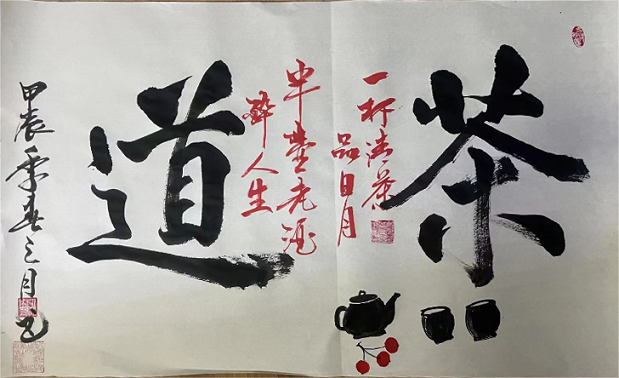 茶
一杯清茶
品日月
半壶老酒
醉人生
道
甲辰季春之月书